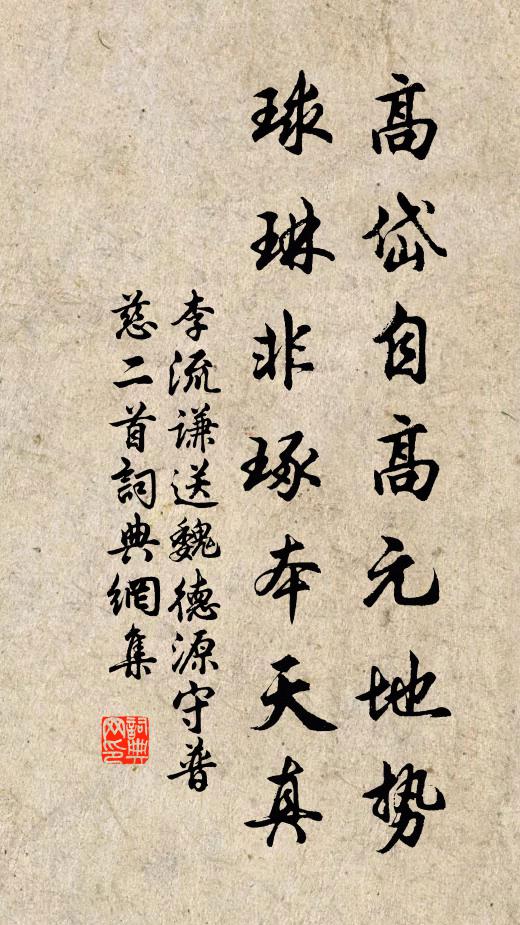 高岱自高元地势
球琳非琢本天真
李流謙送魏德源守普
慈二首詞典網集
詞典
网印